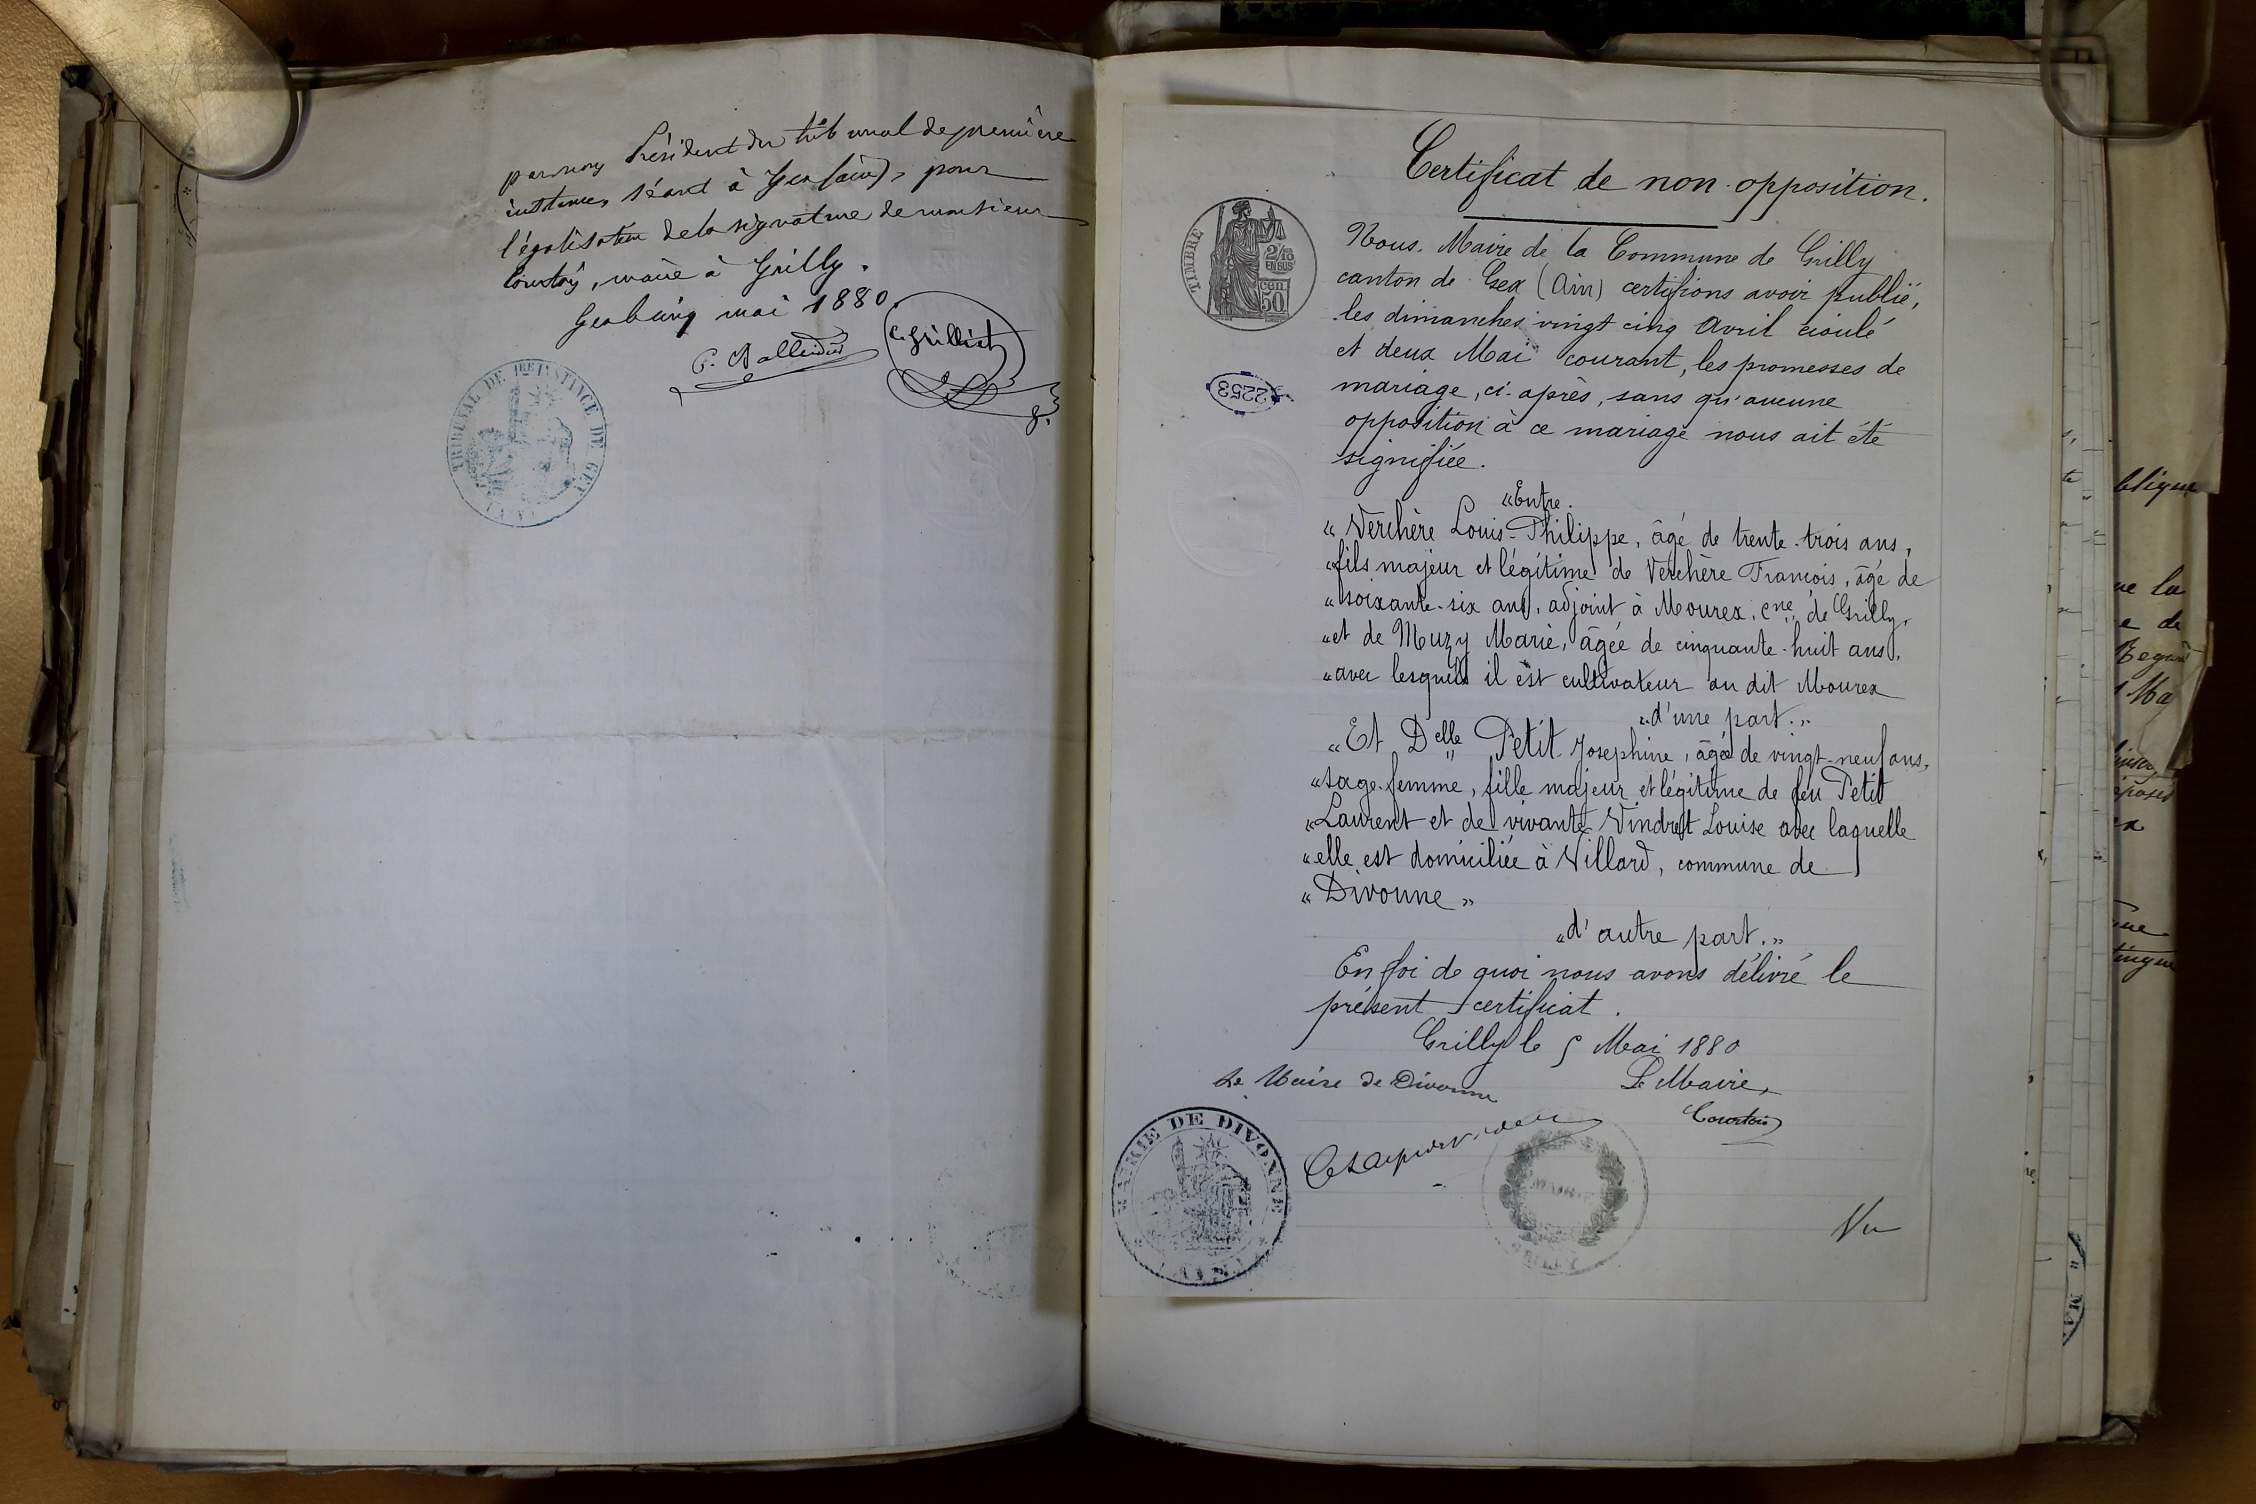 par nous Président du tribunal de première
instance, séant à Gex (ain), pour
légalisation de la signature de monsieur
Courtois, maire à Grilly.
Gex le cinq mai 1880.
TRIBUNAL DE 1RE INSTANCE DE GEX
(AIN)
Certificat de non-opposition.
TIMBRE
2/10
EN SUS
50 cen.
2253
Nous. Maire de la Commune de Grilly
canton de Gex (Ain) certifions avoir publié,
les dimanches vingt cinq Avril écoulé
et deux Mai courant, les promesses de
mariage, ci-après, sans qu'aucune
opposition à ce mariage nous ait été
signifiée.
"Entre.
" Verchère Louis-Philippe, âgé de trente-trois ans,
"fils majeur et légitime de Verchère François, âgé de
"soixante-six ans, adjoint à Mourex, Cne de Grilly,
"et de Muzy Marie, âgée de cinquante-huit ans,
"avec lesquels il est cultivateur au dit Mourex
"d'une part."
"Et Delle Petit Josephine, âgée de vingt-neuf ans,
"sage-femme, fille majeur et légitime de feu Petit
"Laurent et de vivante Vindret Louise avec laquelle
"elle est domiciliée à Villard, commune de
"Divonne"
"d'autre part."
En foi de quoi nous avons délivré le
présent certificat.
Grilly le 5 Mai 1880
Le Maire de Divonne
Le Maire,
Courtois
MAIRIE DE DIVONNE
(AIN)
MAIRIE
Vu